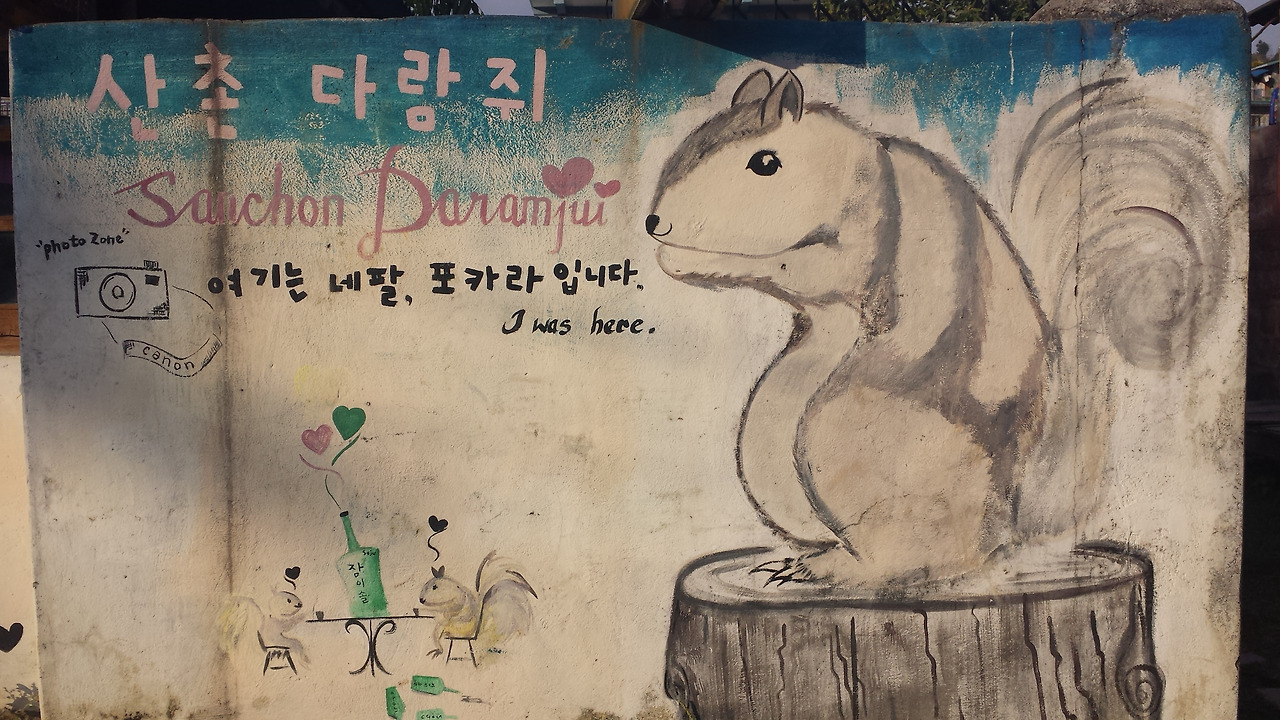 산촌 다람쥐
Sanchon Daramjui
"photo zone"
여기는 네팔, 포카라 입니다.
I was here.
canon
잠이슬